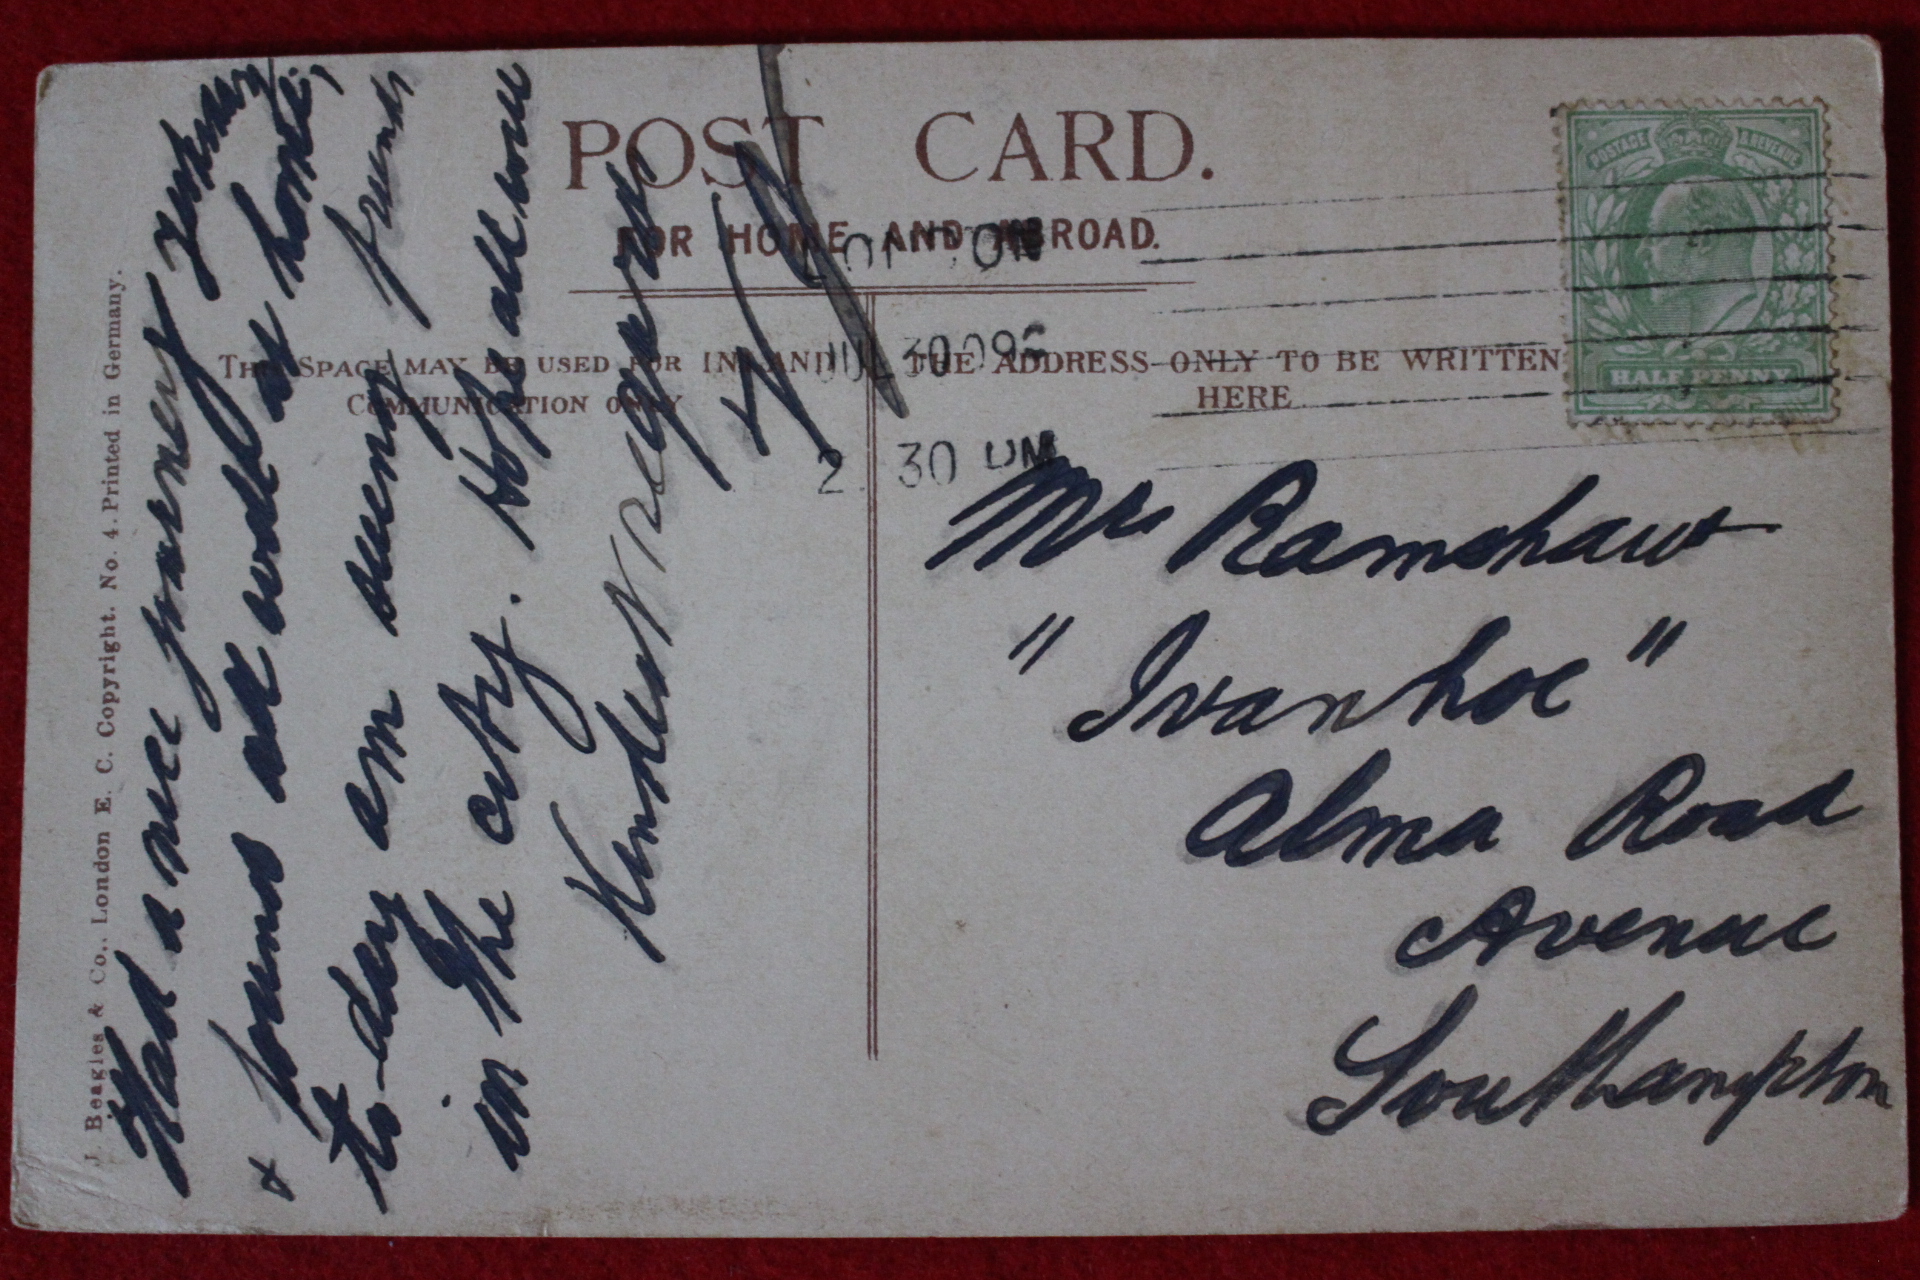 POST CARD.
FOR HOME AND ABROAD.
THIS SPACE MAY BE USED FOR INLAND
COMMUNICATION ONLY
THE ADDRESS ONLY TO BE WRITTEN
HERE
POSTAGE & REVENUE
HALF PENNY
LONDON
JUL 30 09
2. 30 PM
J. Beagles & Co., London E. C. Copyright. No. 4. Printed in Germany.
Had a nice journey yesterday
& found all well at home,
to-day am seeing friends
in the city. Hope all well
Kindest regards
Mr Ramshaw
"Ivanhoe"
Alma Road
Avenue
Southampton